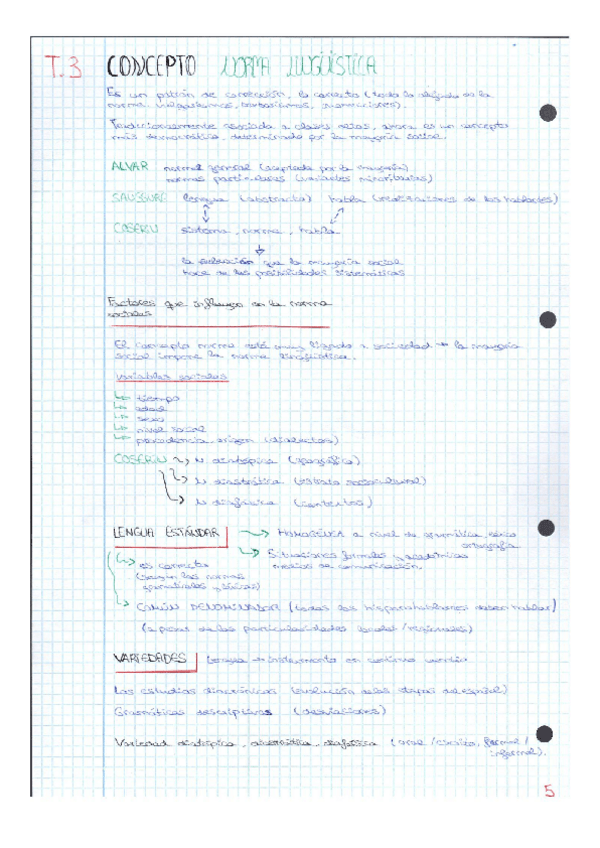 T.3 CONCEPTO NORMA LINGÜÍSTICA
Es un patrón de corrección, lo correcto (todo lo alejado es la
norma: vulgarismos, barbarismos,
Tradicionalmente asociada a clases altas, ahora es un concepto
más democrático, determinado por la mayoría social.
ALVAR norma general (aceptada por la mayoría)
normas particulares (variantes minoritarias)
SAUSSURE lengua (abstracta) habla (realizaciones de los hablantes)
COSERIU sistema, norma, habla
la selección que la mayoría social
hace de las posibilidades sistemáticas
Factores que influyen en la norma
sociales
El concepto norma está muy ligado a sociedad → la mayoría
social impone la norma lingüística.
Variables sociales
↳ tiempo
↳ edad
↳ sexo
↳ nivel social
↳ procedencia, origen (dialectos)
COSERIU → N diatópica (geográfica)
↳ N diastrática (estrato sociocultural)
↳ N diafásica (contextos)
LENGUA ESTÁNDAR → HOMOGÉNEA a nivel de gramática, léxico
ortografía
↳ Situaciones formales y académicas
medios de comunicación
↳ es correcta
(según las normas
gramaticales y léxicas)
↳ COMÚN DENOMINADOR (todos los hispanohablantes deben hablar)
(a pesar de las particularidades locales / regionales)
VARIEDADES Lengua → instrumento en continuo cambio
Los estudios diacrónicos (evolución de las etapas del español)
Gramáticas descriptivas (desviaciones)
Variedad diatópica, diastrática, diafásica (oral / escrito, formal /
informal).
5